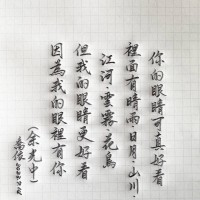 你的眼睛可真好看
裡面有晴雨·日月·山川·
江河·雲霧·花鳥
但我的眼睛更好看
因為我的眼裡有你
(余光中)